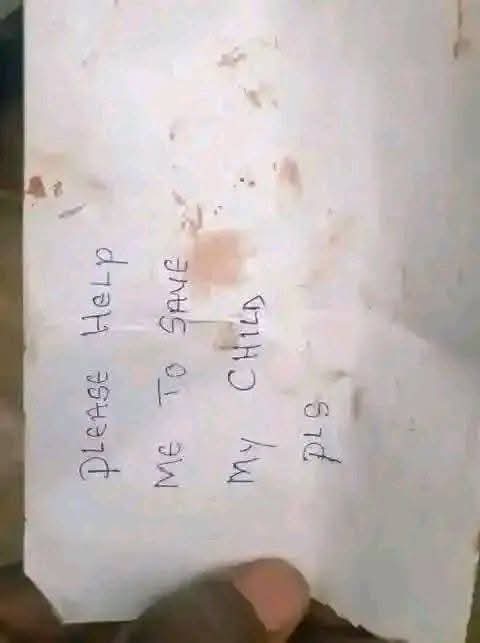 PLEASE HELP
ME TO SAVE
MY CHILD
PLS